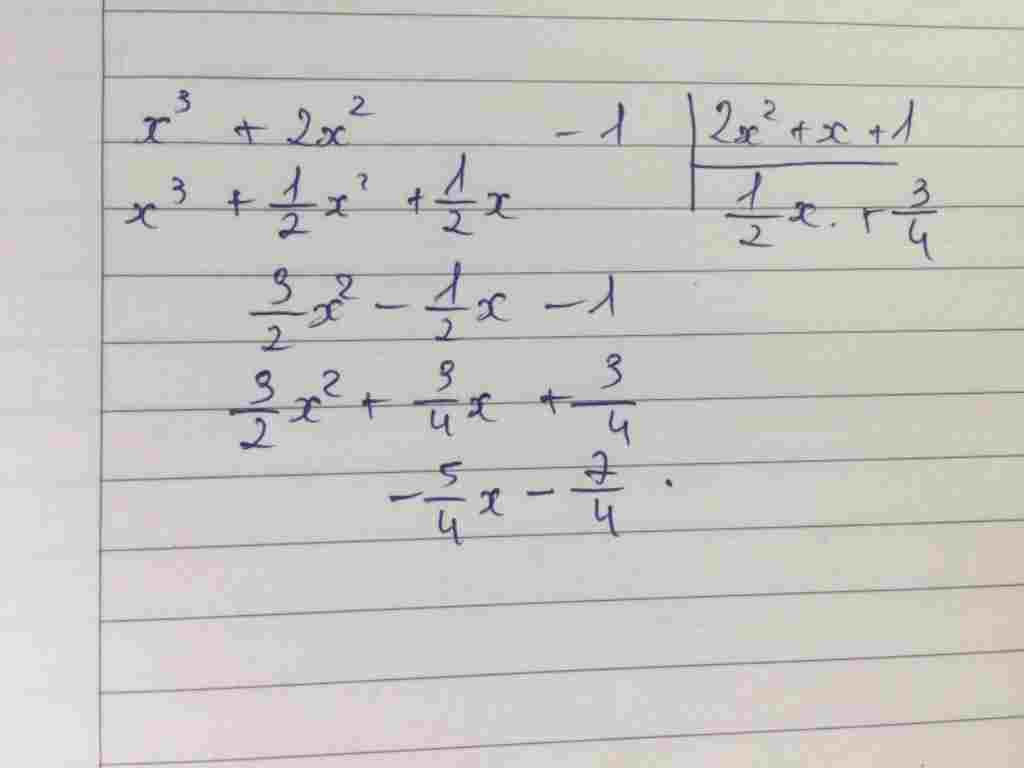 x³ + 2x² - 1 | 2x² + x + 1
x³ + 1/2 x² + 1/2 x | 1/2 x. + 3/4
3/2 x² - 1/2 x - 1
3/2 x² + 3/4 x + 3/4
- 5/4 x - 7/4 .